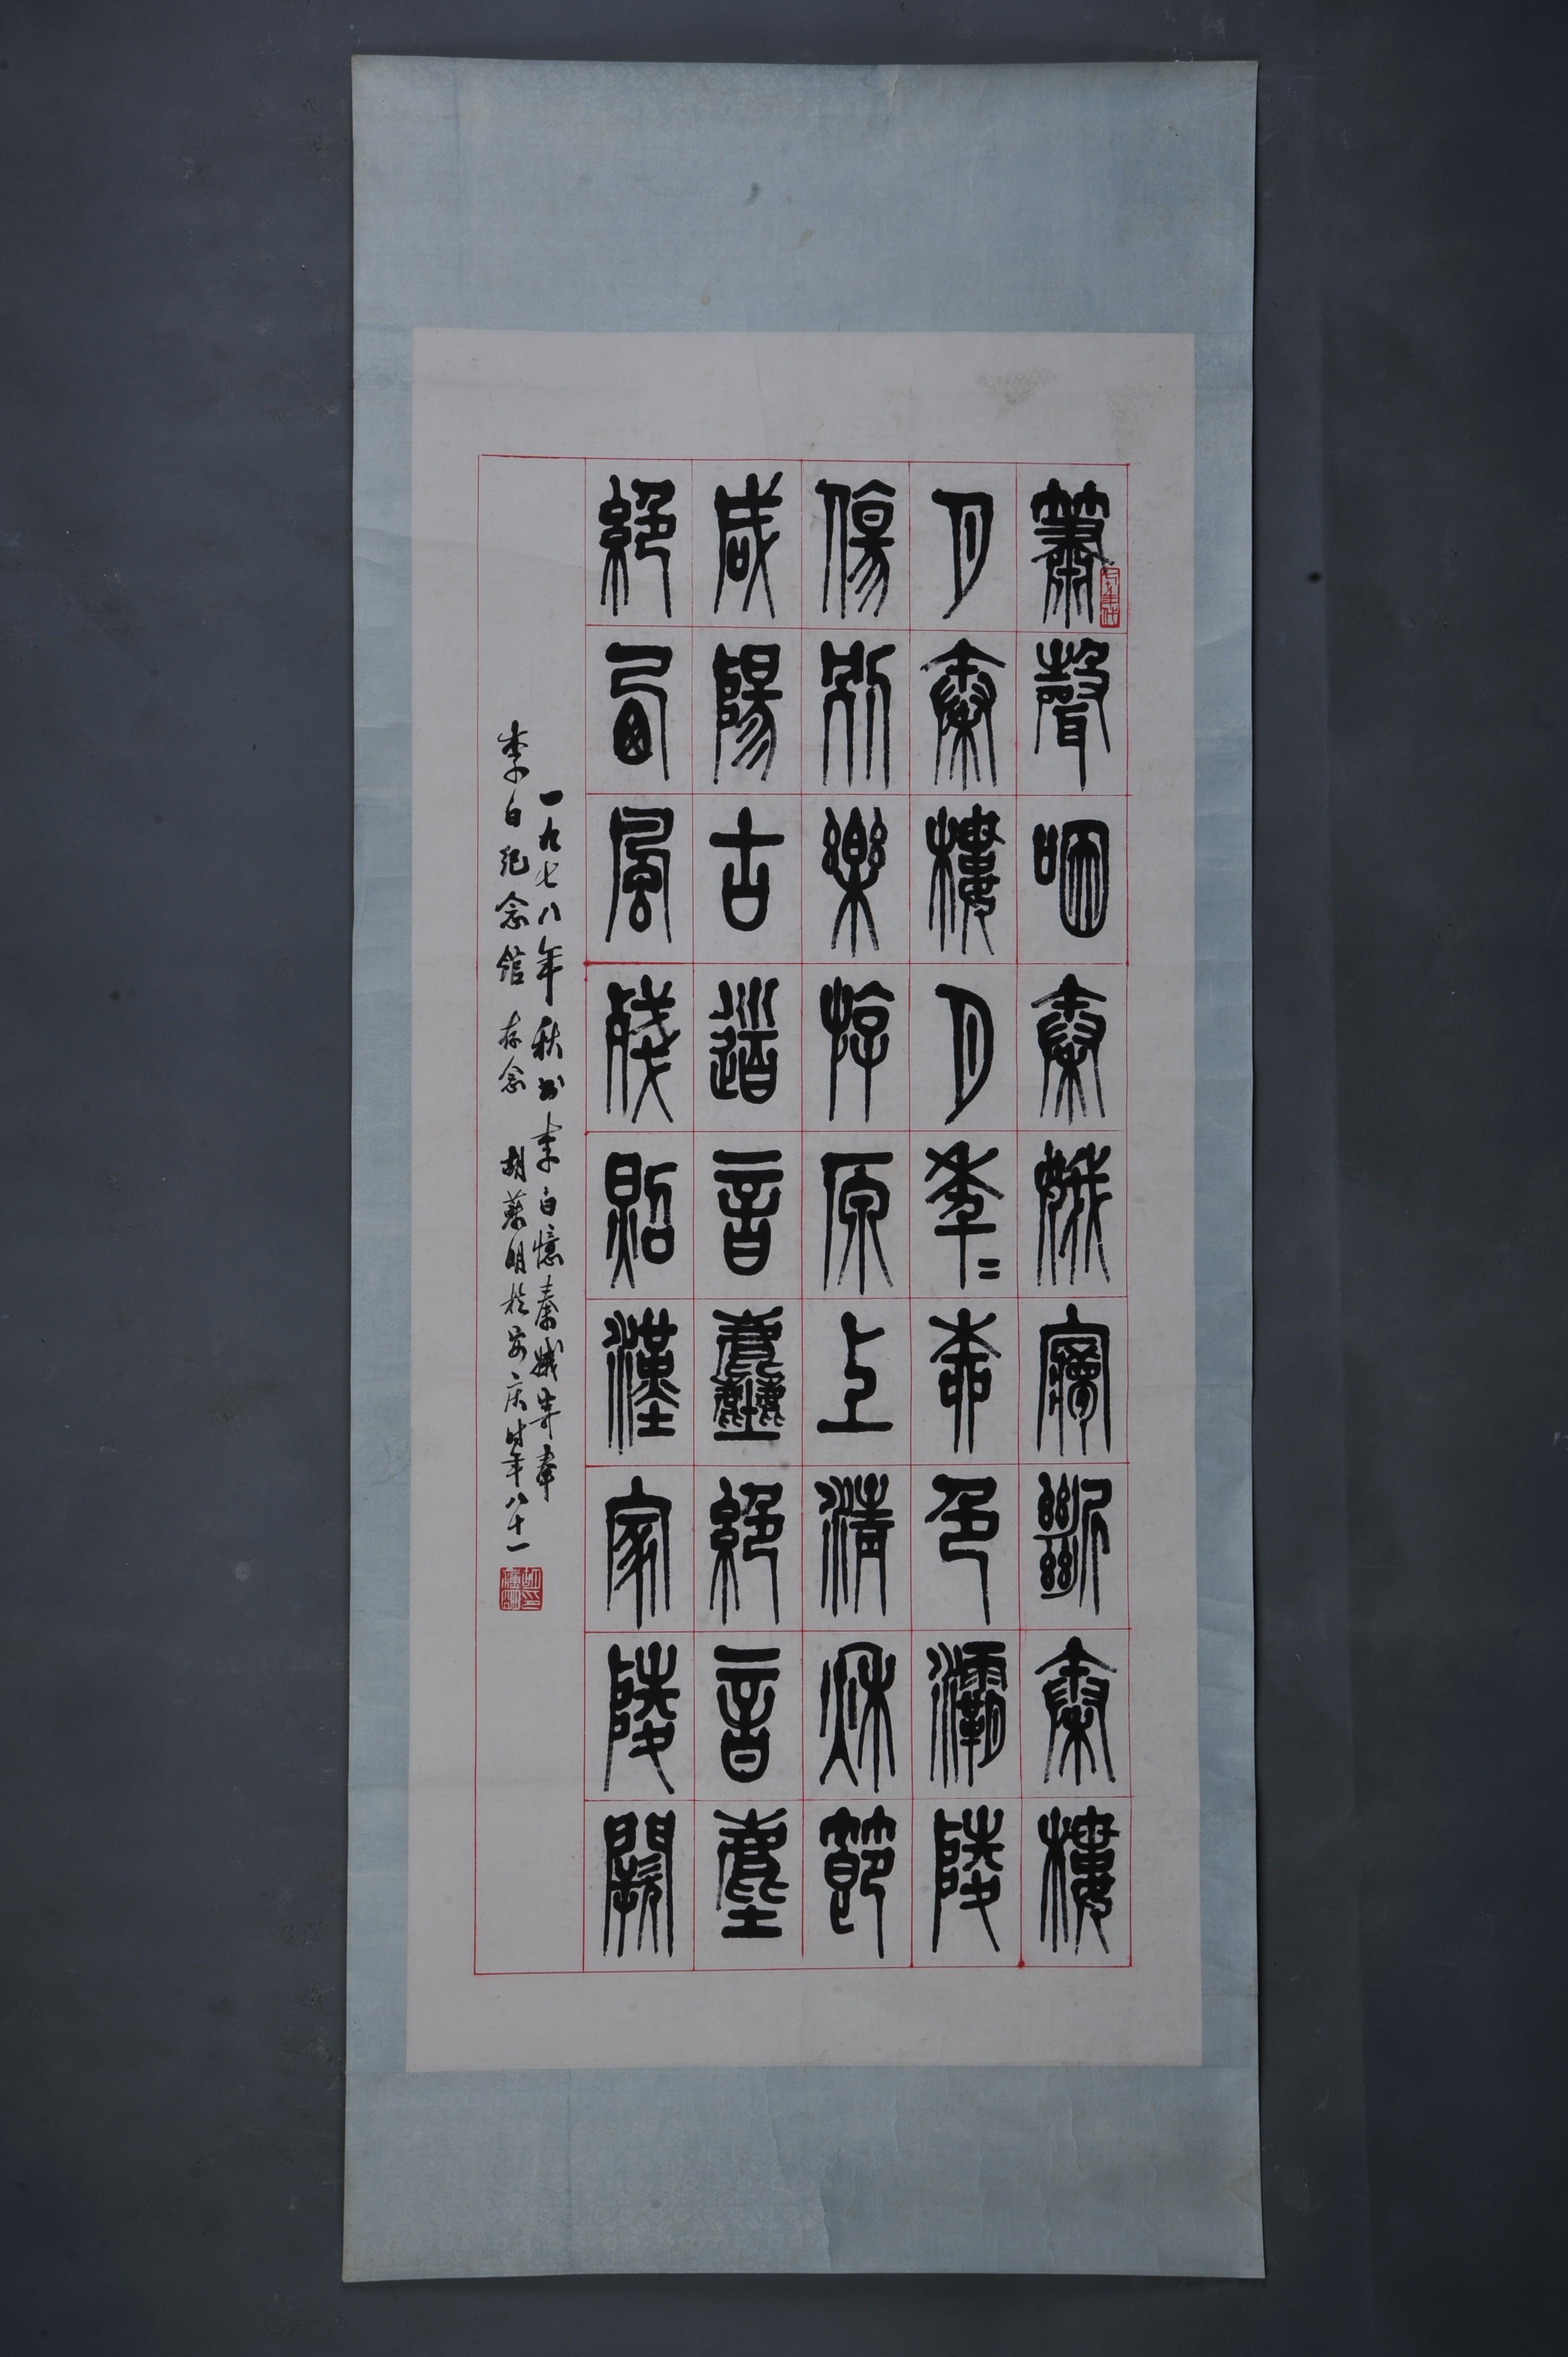 簫聲咽秦娥夢斷秦樓
月秦樓月年〻柳色灞陵
傷別樂游原上清秋節
咸陽古道音塵絕音塵
絕西風殘照漢家陵闕
一九七八年秋书李白憶秦娥寄奉
李白纪念館 存念 胡蘇明於安庆时年八十一